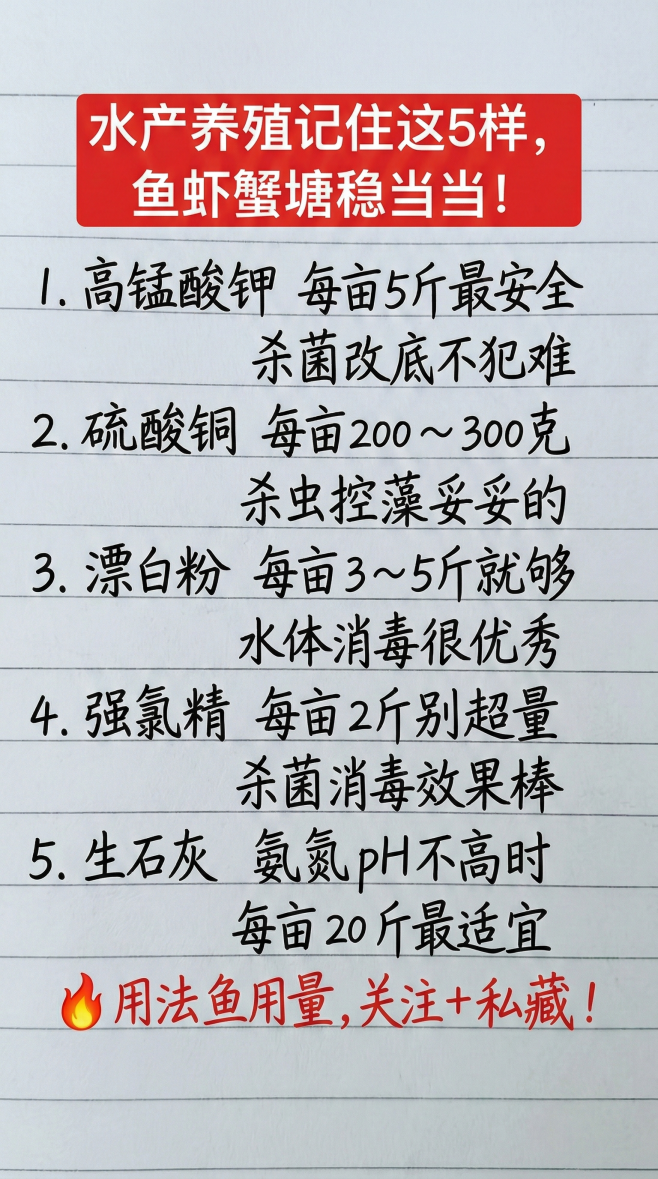 水产养殖记住这5样，
鱼虾蟹塘稳当当！
1. 高锰酸钾 每亩5斤最安全
杀菌改底不犯难
2. 硫酸铜 每亩200～300克
杀虫控藻妥妥的
3. 漂白粉 每亩3～5斤就够
水体消毒很优秀
4. 强氯精 每亩2斤别超量
杀菌消毒效果棒
5. 生石灰 氨氮pH不高时
每亩20斤最适宜
🔥用法鱼用量,关注+私藏！